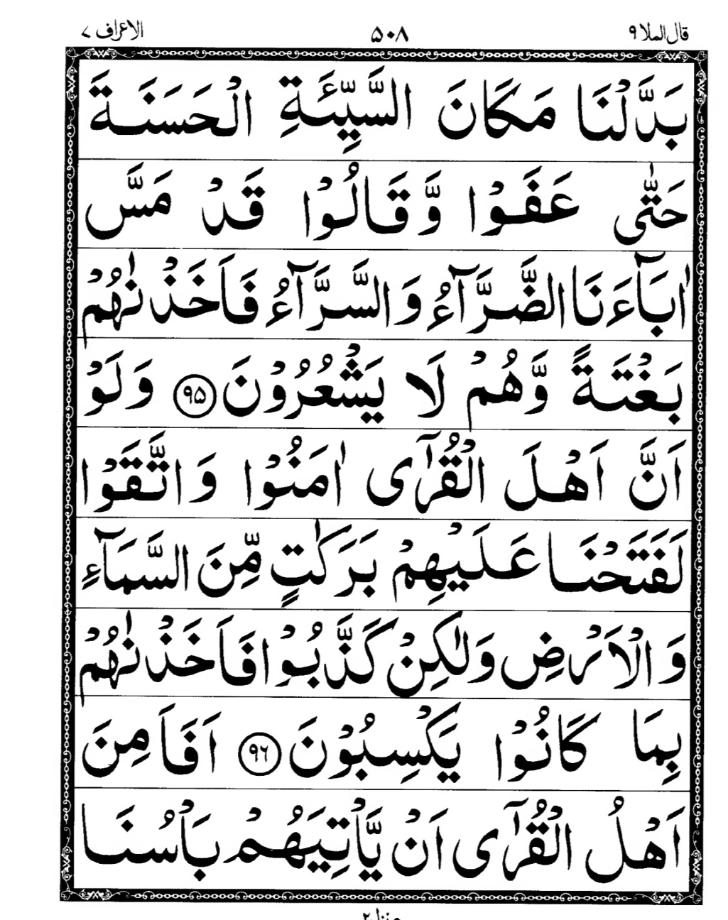 قال الملا ۹ ۵۰۸ الاعراف ۷
بَدَّلْنَا مَكَانَ السَّيِّئَةِ الْحَسَنَةَ
حَتّٰى عَفَوْا وَّقَالُوْا قَدْ مَسَّ
اٰبَآءَنَا الضَّرَّآءُ وَالسَّرَّآءُ فَاَخَذْنٰهُمْ
بَغْتَةً وَّهُمْ لَا يَشْعُرُوْنَ ﴿۹۵﴾ وَلَوْ
اَنَّ اَهْلَ الْقُرٰٓى اٰمَنُوْا وَاتَّقَوْا
لَفَتَحْنَا عَلَيْهِمْ بَرَكٰتٍ مِّنَ السَّمَآءِ
وَالْاَرْضِ وَلٰكِنْ كَذَّبُوْا فَاَخَذْنٰهُمْ
بِمَا كَانُوْا يَكْسِبُوْنَ ﴿۹۶﴾ اَفَاَمِنَ
اَهْلُ الْقُرٰٓى اَنْ يَّاْتِيَهُمْ بَاْسُنَا
منزل ۲